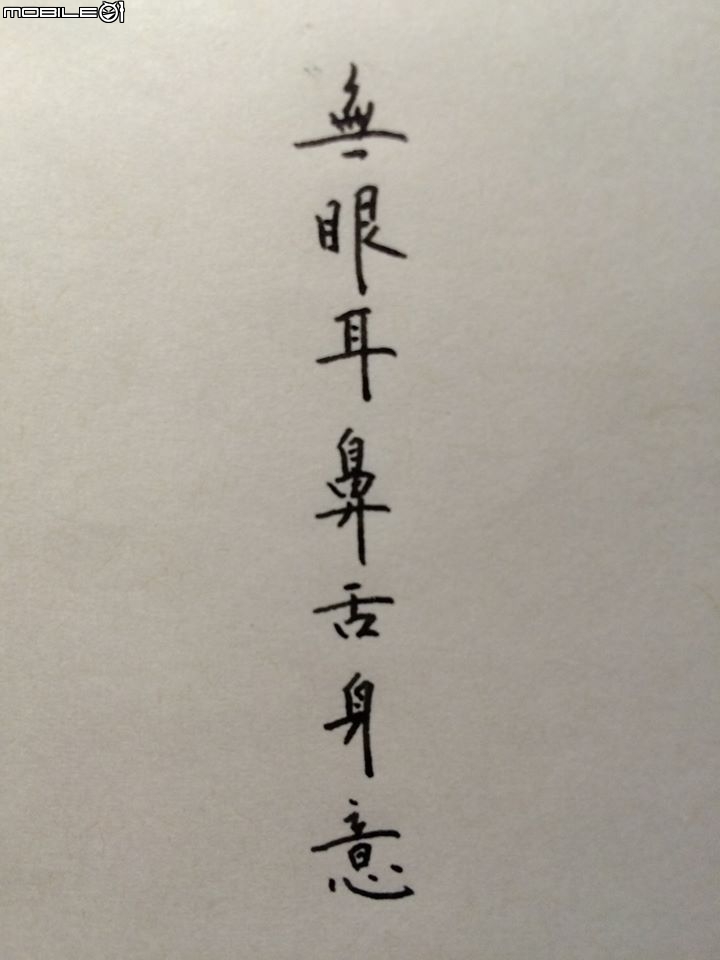 MOBILE01
無眼耳鼻舌身意